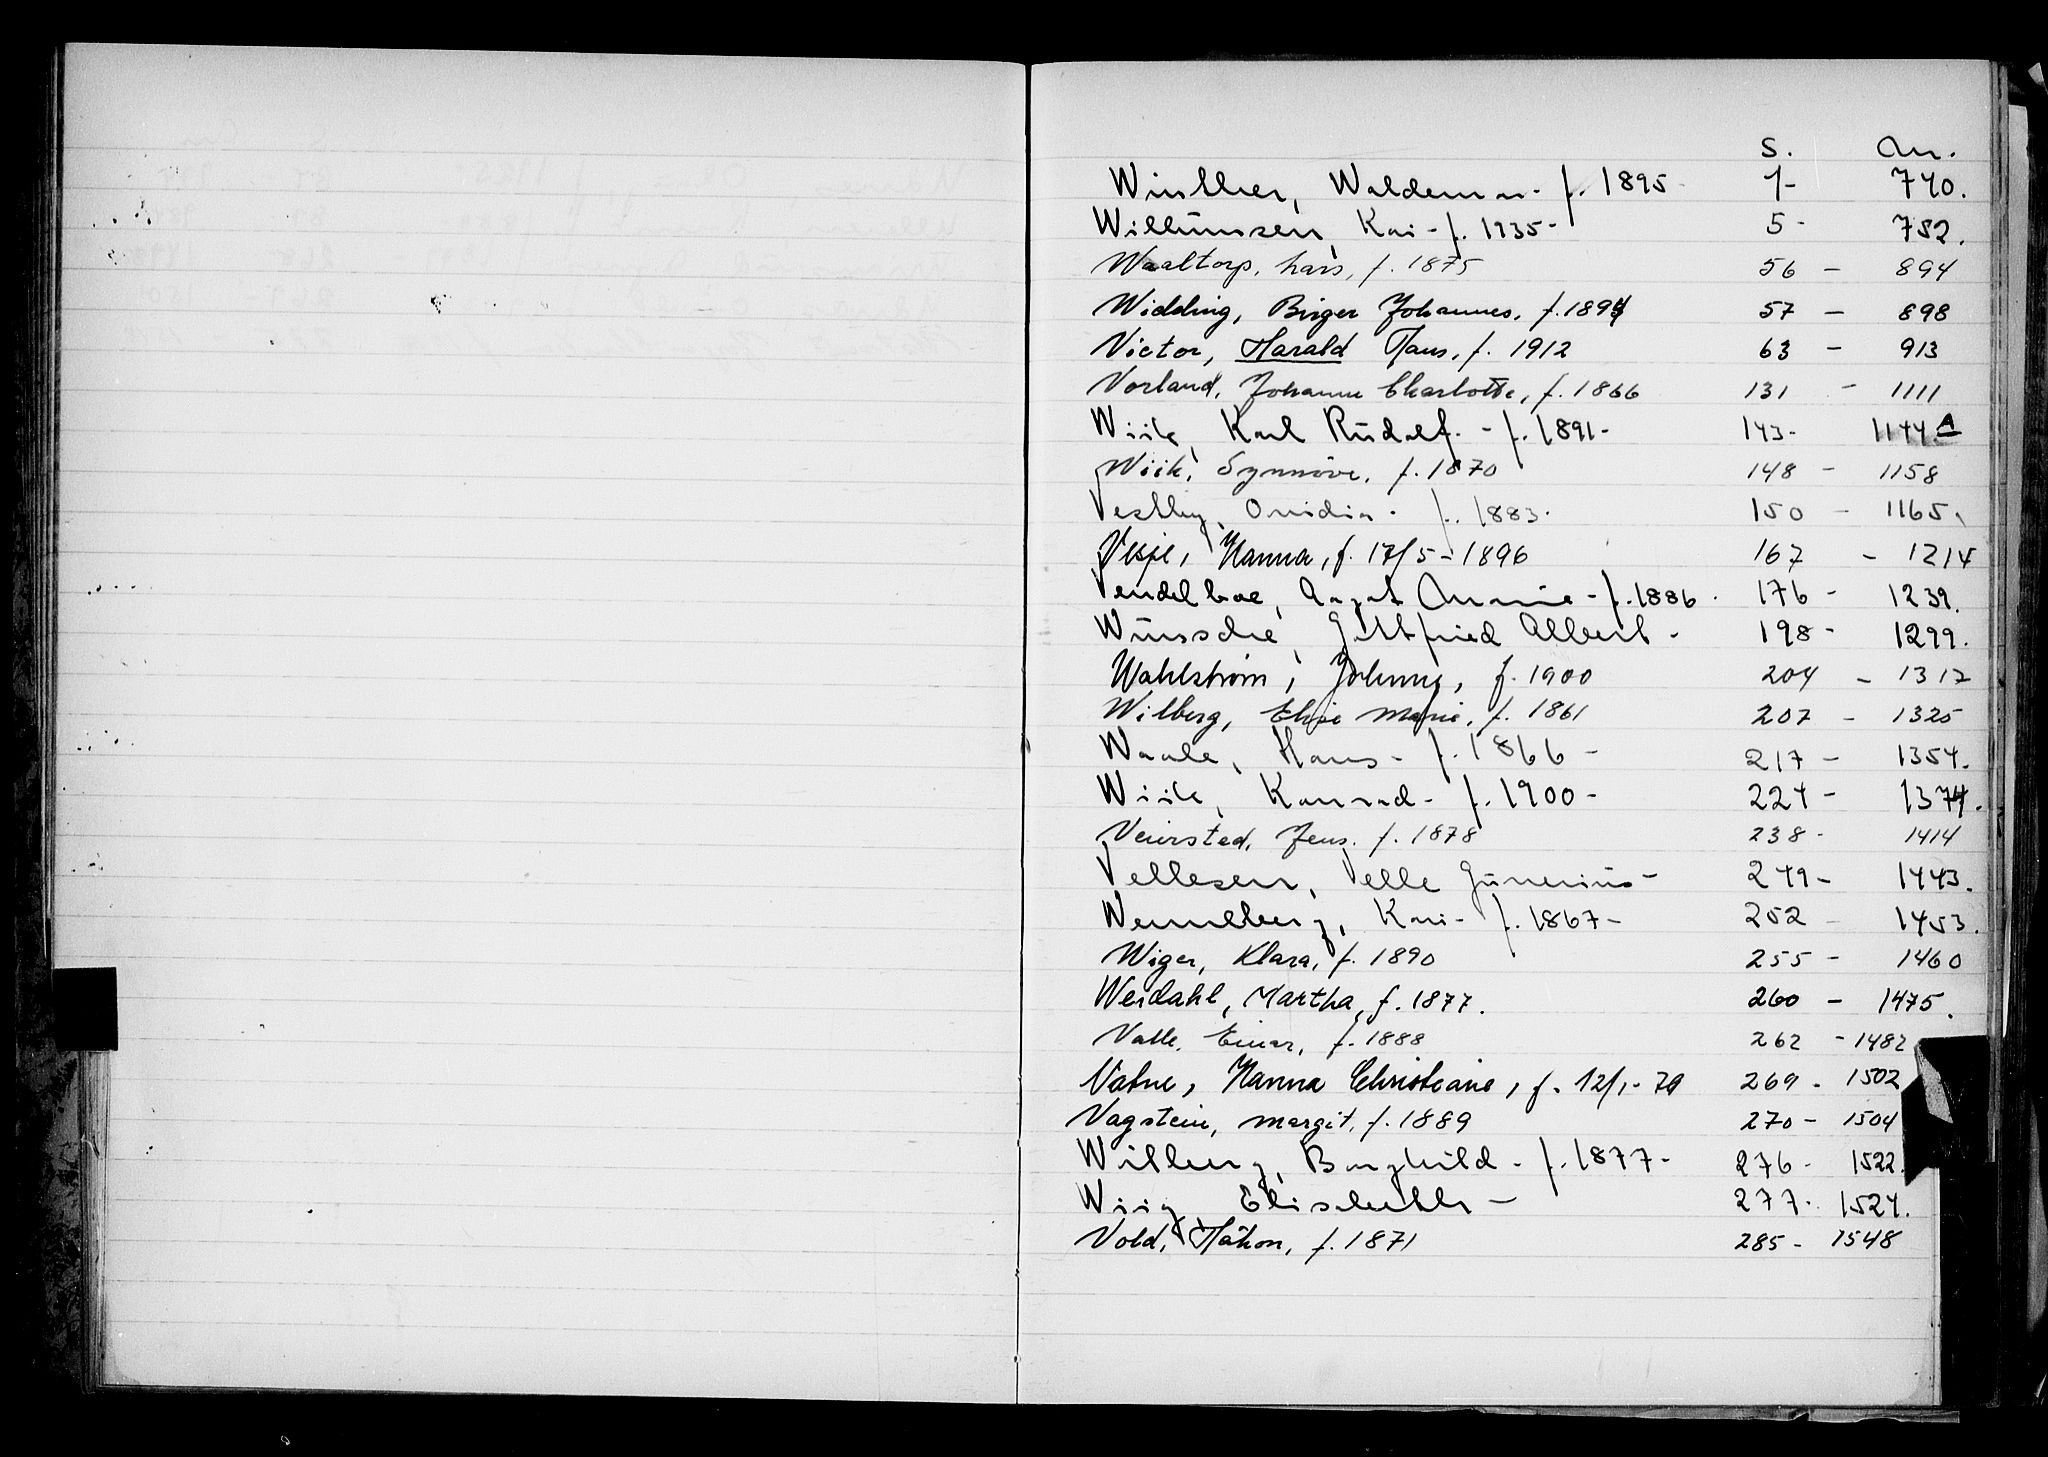 S. Nr.
Winther, Waldemar - f. 1895 - 1 - 740.
Willumsen, Kai - f. 1935 - 5 - 752.
Waaltorp, Lars, f. 1875 56 - 894
Widding, Birger Johannes, f. 1894 57 - 898
Victor, Harald Hans, f. 1912 63 - 913
Vorland, Johanne Charlotte, f. 1866 131 - 1111
Wiik, Karl Rudolf. - f. 1891 - 143 - 1144 A
Wiik, Synnöve, f. 1870 148 - 1158
Vestby, Ovidia - f. 1883. 150 - 1165.
Vesje, Hanna, f. 17/5 - 1896 167 - 1214
Vendelboe, Aagot Marie - f. 1886. 176 - 1239.
Wünsche, Gottfried Albert - 198 - 1299.
Wahlstrøm, Johnny, f. 1900 204 - 1317
Wilberg, Elise Marie, f. 1861 207 - 1325
Waale, Hans - f. 1866 - 217 - 1354.
Wiik, Konrad - f. 1900 - 224 - 1374.
Veiersted, Jens. f. 1878 238 - 1414
Vellesen, Velle Gunerius - 249 - 1443.
Wennberg, Kari - f. 1867 - 252 - 1453.
Wiger, Klara, f. 1890 255 - 1460
Werdahl, Martha, f. 1877. 260 - 1475.
Valle, Einar, f. 1888 262 - 1482
Vatne, Hanna Christiane, f. 12/1 - 79 269 - 1502
Vagstein, Margit, f. 1889 270 - 1504
Wilberg, Borghild - f. 1877 - 276 - 1522.
Wiig, Elisabeth - 277 - 1524.
Vold, Håkon, f. 1871 285 - 1548